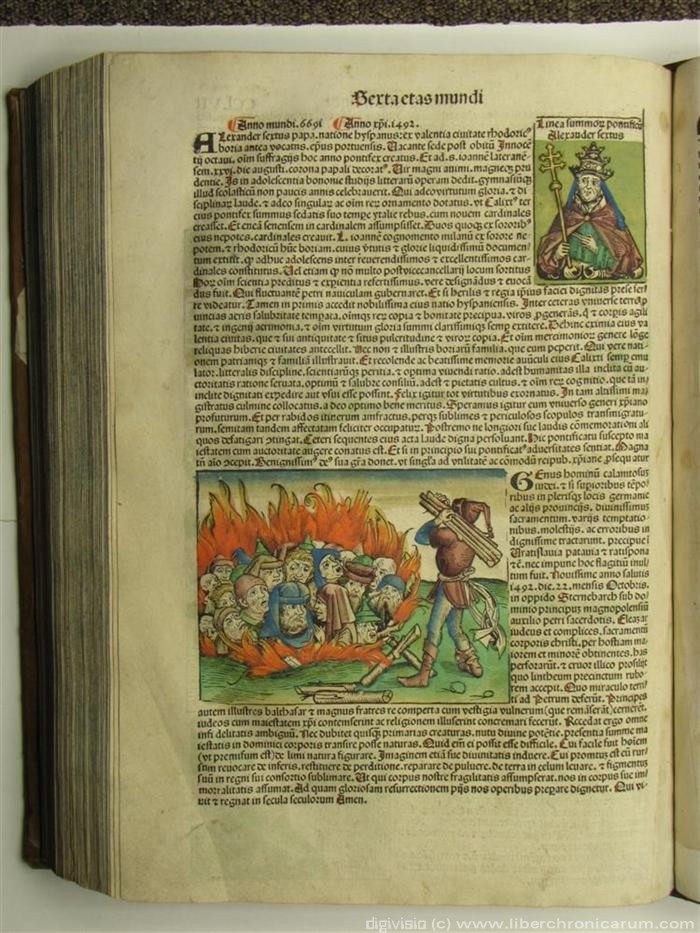 Sexta etas mundi
Anno mundi .6691 Anno xpi .1492.
Linea summoꝝ pontificũ
Alexander sextus
Alexander sextus papa. natione hyspanus: ex valentia ciuitate rhodoricꝰ
boria antea vocatus. ep̃us portuensis. Vacante sede post obitũ Innocẽ
tij octaui. oĩm suffragijs hoc anno pontifex creatus. Et ad .s. ioannẽ laterane
sem .xxvj. die augusti. corona papali decoratꝰ. Vir magni animi. magneqꝫ pru
dentie. Is in adolescentia bononie studijs litterarũ operam dedit. gymnasiũqꝫ
illud scolasticũ non paucis annis celebrauerit. Qui adeo virtutum gloria. ⁊ di
sciplinaꝝ laude. ⁊ adeo singulari ac oĩm rerũ ornamento dotatus. vt Calixtꝰ ter
cius pontifex summus
creasset. Et eneã senensem in cardinalem assumpsisset. Duos quoqꝫ ex sororibꝰ
eius nepotes. cardinales creauit. L. ioannẽ cognomento milanũ ex sorore ne
potem. ⁊ rhodoricũ hũc boriam. cuius virtutis ⁊ glorie liquidissimũ documen
tum extitit. qꝫ adhuc adolescens inter reuerendissimos ⁊ excellentissimos car
dinales constitutus. Uel etiam qꝫ nõ multo post vicecancellarij locum sortitus
dus fuit. Qui fluctuantẽ petri nauiculam gubernaret. Et si herilis ⁊ regia ipsius faciei dignitas prese ferr
re videatur. Tamen in primis accedit nobilissima eius natio hyspaniensis. Inter ceteras vniuerse terre
uincias aeris salubritate temperata. oĩmqꝫ reꝝ copia ⁊ bonitate precipua. viros
tate. ⁊ ingenij acrimonia. ⁊ oĩm virtutum gloria summi clarissimiqꝫ semp extitere. Dehinc eximia eius va
lentia ciuitas. que ⁊ sui antiquitate ⁊ situs pulcritudine ⁊ viroꝝ copia. Et oĩm mercimonioꝝ genere lõge
reliquas hiberie ciuitates antecellit. Nec non ⁊ illustris boriarũ familia. que eum peperit. Qui vere nati
onem patriamqꝫ ⁊ familiã illustrauit. Et recolende ac beatissime memorie auũculi eius Calixti semp emu
lator. litteralis discipline. scientiarũqꝫ peritia. ⁊ optima viuendi ratio. adest humanitas illa inclita cũ au
ctoritatis ratione seruata. optimũ ⁊ salubre consiliũ. adest ⁊ pietatis cultus. ⁊ oĩm reꝝ cognitio. que tã in
inclite dignitati expedire aut vsui esse possint. Felix igitur tot virtutibus exornatus. In tam altissimi ma
gistratus culmine collocatus. a deo optimo bene meritus. Speramus igitur cum vniuerso generi xp̃iano
profuturum. Et per rabidos itinerum amfractus. perqꝫ sublimes ⁊ periculosos scopulos transmigratu
rum. semitam tandem affectatam feliciter occupatur. Postremo ne longiori sue laudis cõmemorationi ali
quos defatigari ptingat. Ceteri sequentes eius acta laude digna persoluant. Hic pontificatu suscepto ma
iestatem cum auctoritate augere conatus est. Et si in principio sui pontificatꝰ aduersitates sentiat. Magna
tñ aĩo accepit. Benignissimꝰ deꝰ sua grã donet. vt singla ad vtilitatẽ ac cõmodũ reipub. xp̃iane psequatur
Genus hominũ calamitosuʒ
iudei. ⁊ si supioribus tẽpo
ribus in plerisqꝫ locis germanie
ac alijs prouincijs. diuinissimus
sacramentum. varijs temptatio
nibus. molestijs. ac erroribus in
dignissime tractarunt. precipue ĩ
Uratislauia patauia ⁊ ratispona
⁊c̃. nec impune hoc flagitiũ inul
tum fuit. Nouissime anno salutis
1492. die .22. mensis Octobris.
in oppido Sternebarch sub do
minio principuʒ magnopolensiũ
auxilio petri sacerdotis. Eleazar
iudeus et complices. sacramentũ
corporis christi. per hostiam ma
iorem et minorẽ obtinentes. has
perforarũt. ⁊ cruor illico prosilijt
quo lintheum precinctum rubo
rem accepit. Quo miraculo terri
ti ad Petrum deferũt. Principes
autem illustres balthasar ⁊ magnus fratres re comperta cum vestigia vulnerum (que remãserãt) cernerẽt.
iudeos cum maiestatem xp̃i contemserint ac religionem illuserint concremari fecerũt. Recedat ergo omne
infidelitatis ambiguũ. Nec dubitet quisqꝫ primarias creaturas. nutu diuine potẽtie. presentia summe ma
iestatis in dominici corporis transire posse naturas. Quid em̃ ei possit esse difficile. Cui facile fuit hoĩem
(vt premisum est) de limi natura figurare. Imaginem etiã sue diuinitatis induere. Cui promtus est eũ rur
sum reuocare de inferis. restituere de perditione. reparare de puluere. de terra in celum leuare. ⁊ figmentus
suũ in regni sui consortio sublimare. Ut qui corpus nostre fragilitatis assumpserat. nos in corpus sue im
mortalitatis assumat. Ad quam gloriosam resurrectionem pijs nos operibus prepare dignetur. Qui vi
uit ⁊ regnat in secula seculorum Amen.
digivisio (c) www.liberchronicarum.com